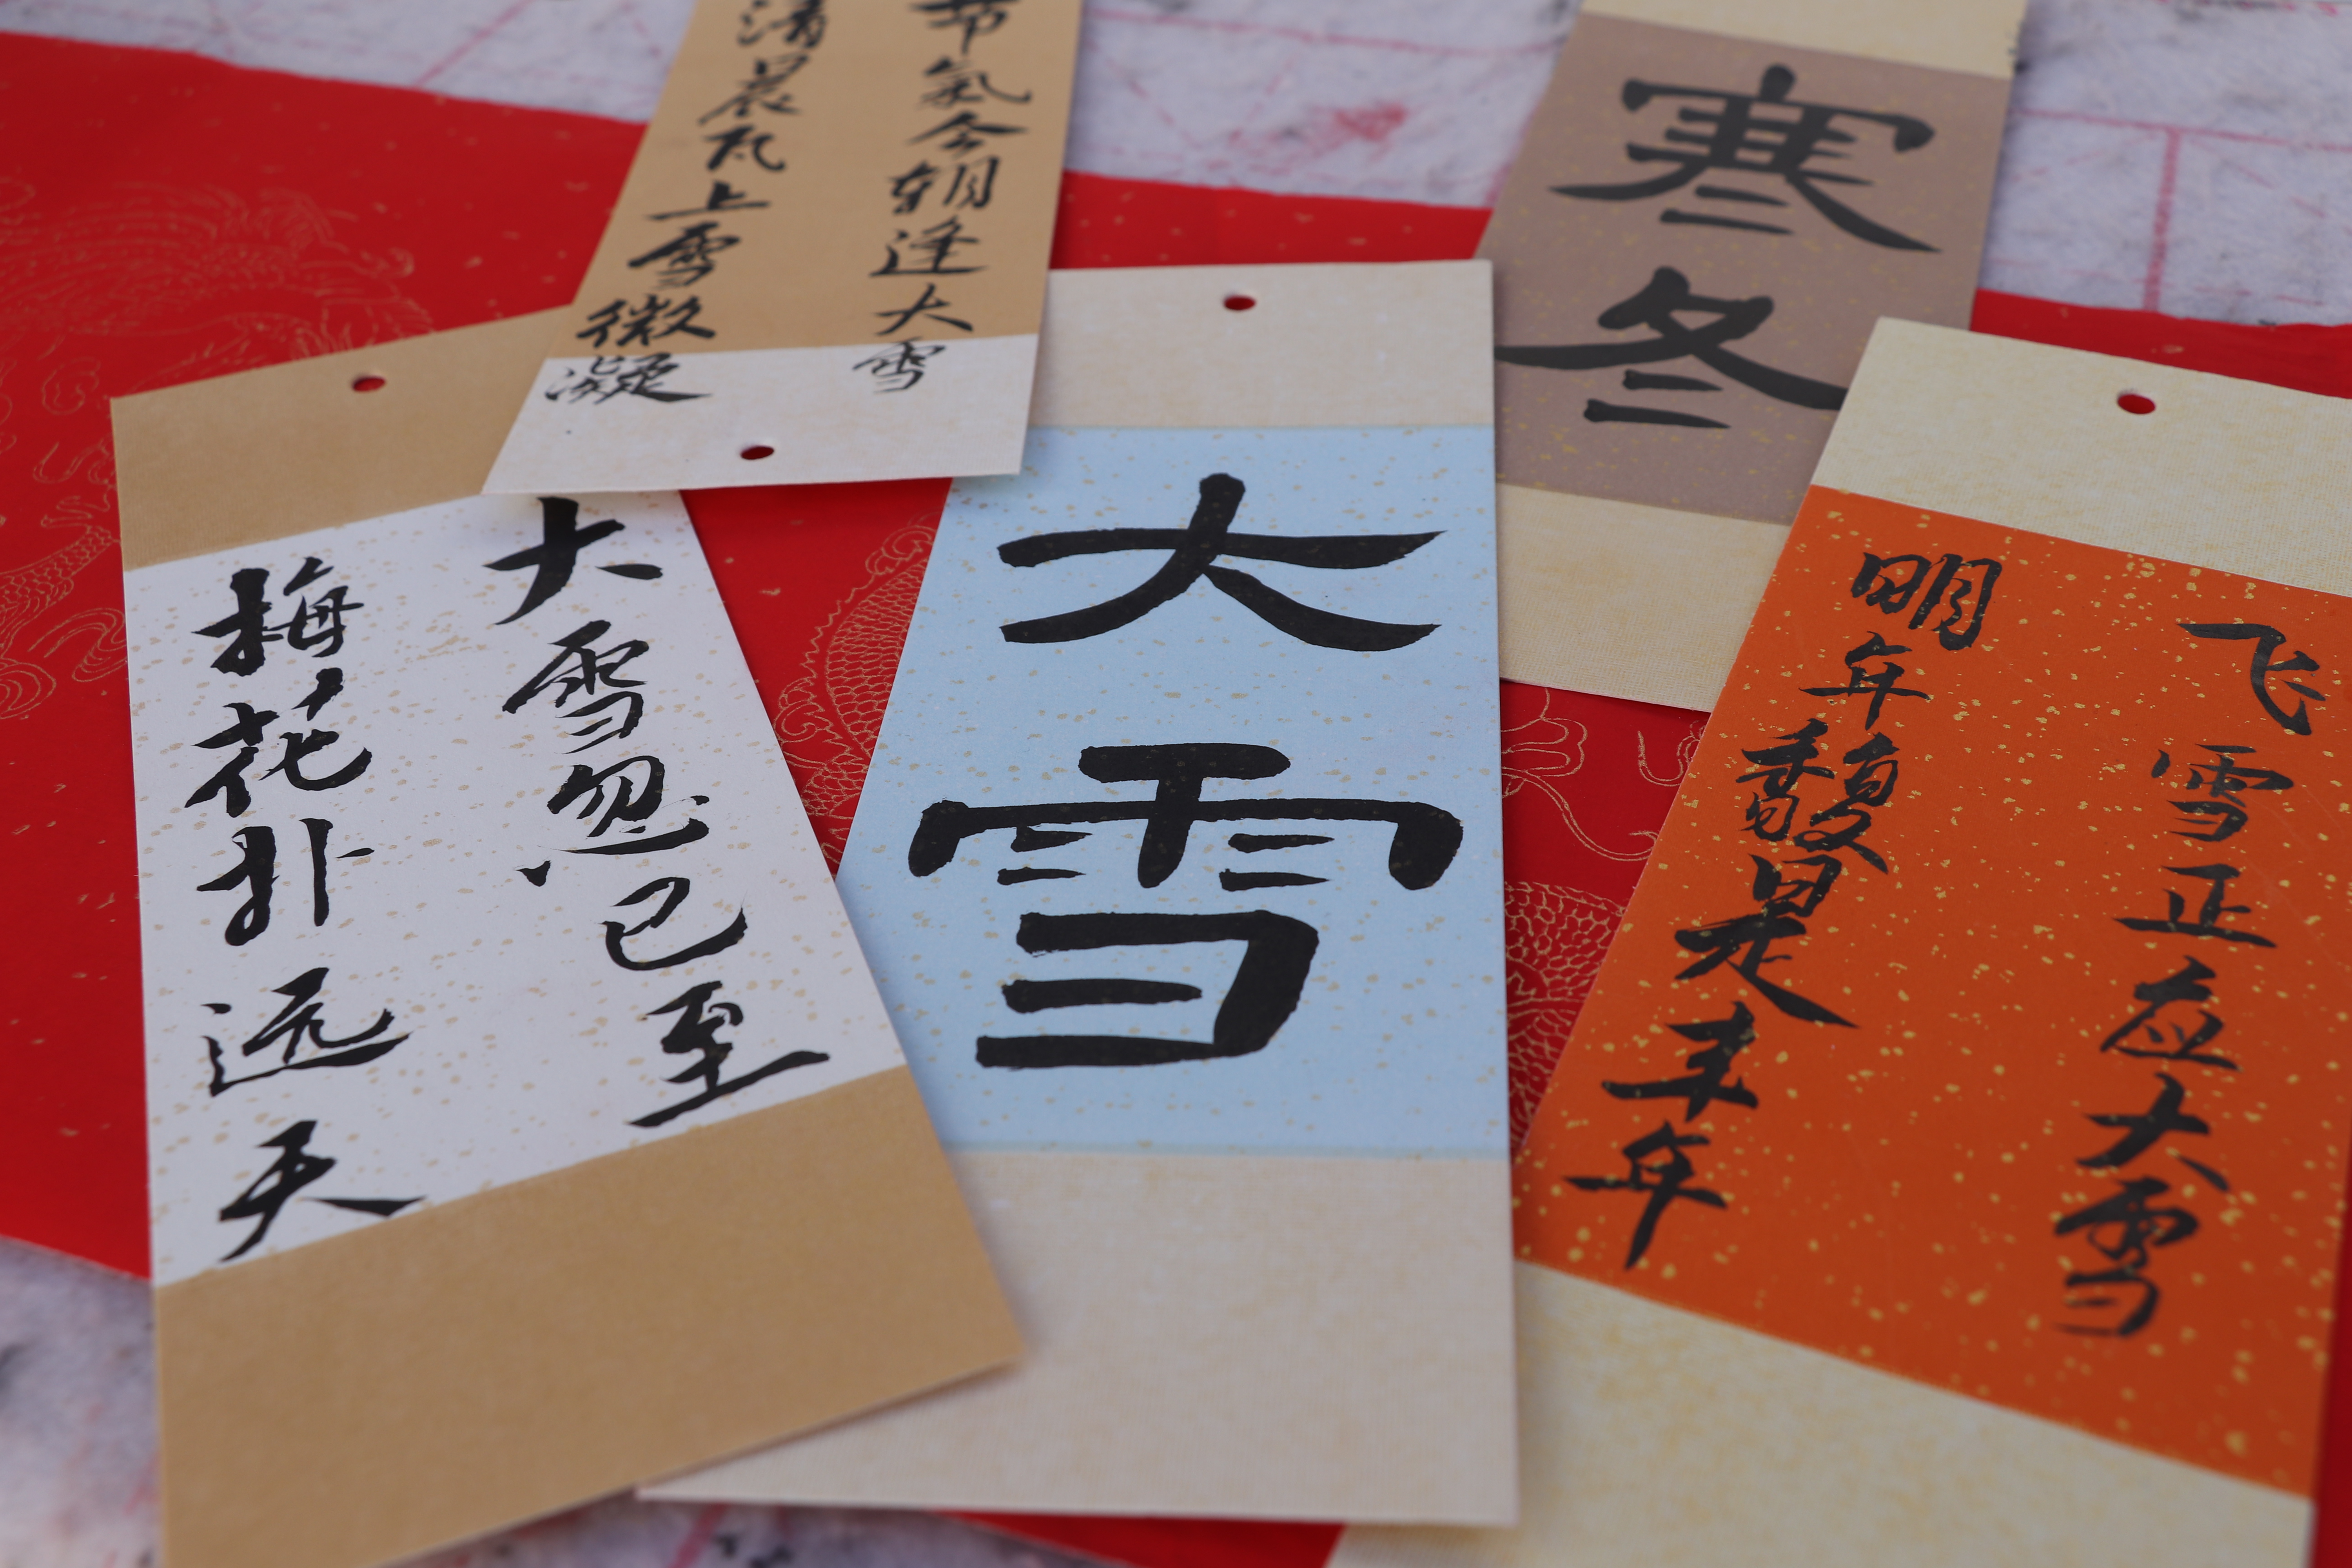 氣今朝逢大雪
清晨瓦上雪微凝
寒冬
大雪忽已至
梅花扑远天
大雪
飞雪正应大雪
明年馥是丰年